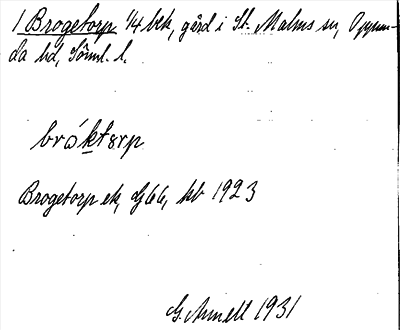 1 Brogetorp 1/4 bek, gård i St. Malms sn, Oppun-
da hd, Söml. l.
bró̀ktɜrp
Brogetorp ek, G66, kb 1923
G. Armell 1931